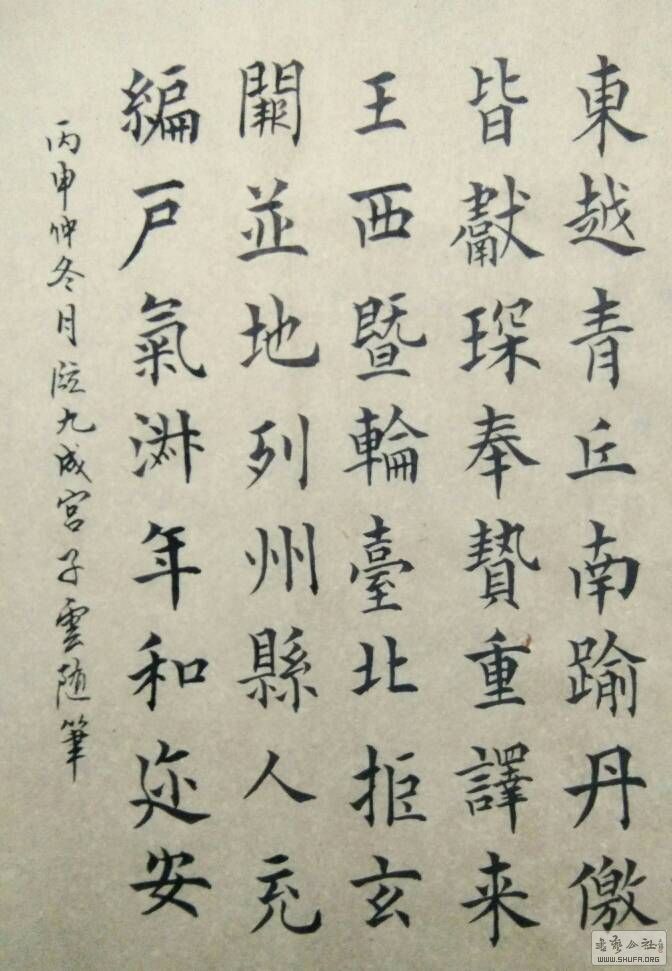 東越青丘南踰丹儌
皆獻琛奉贄重譯来
王西暨輪臺北拒玄
闕並地列州縣人充
編戸氣淑年和迩安
丙申仲冬月临九成宫子雲随筆
书艺公社
WWW.SHUFA.ORG